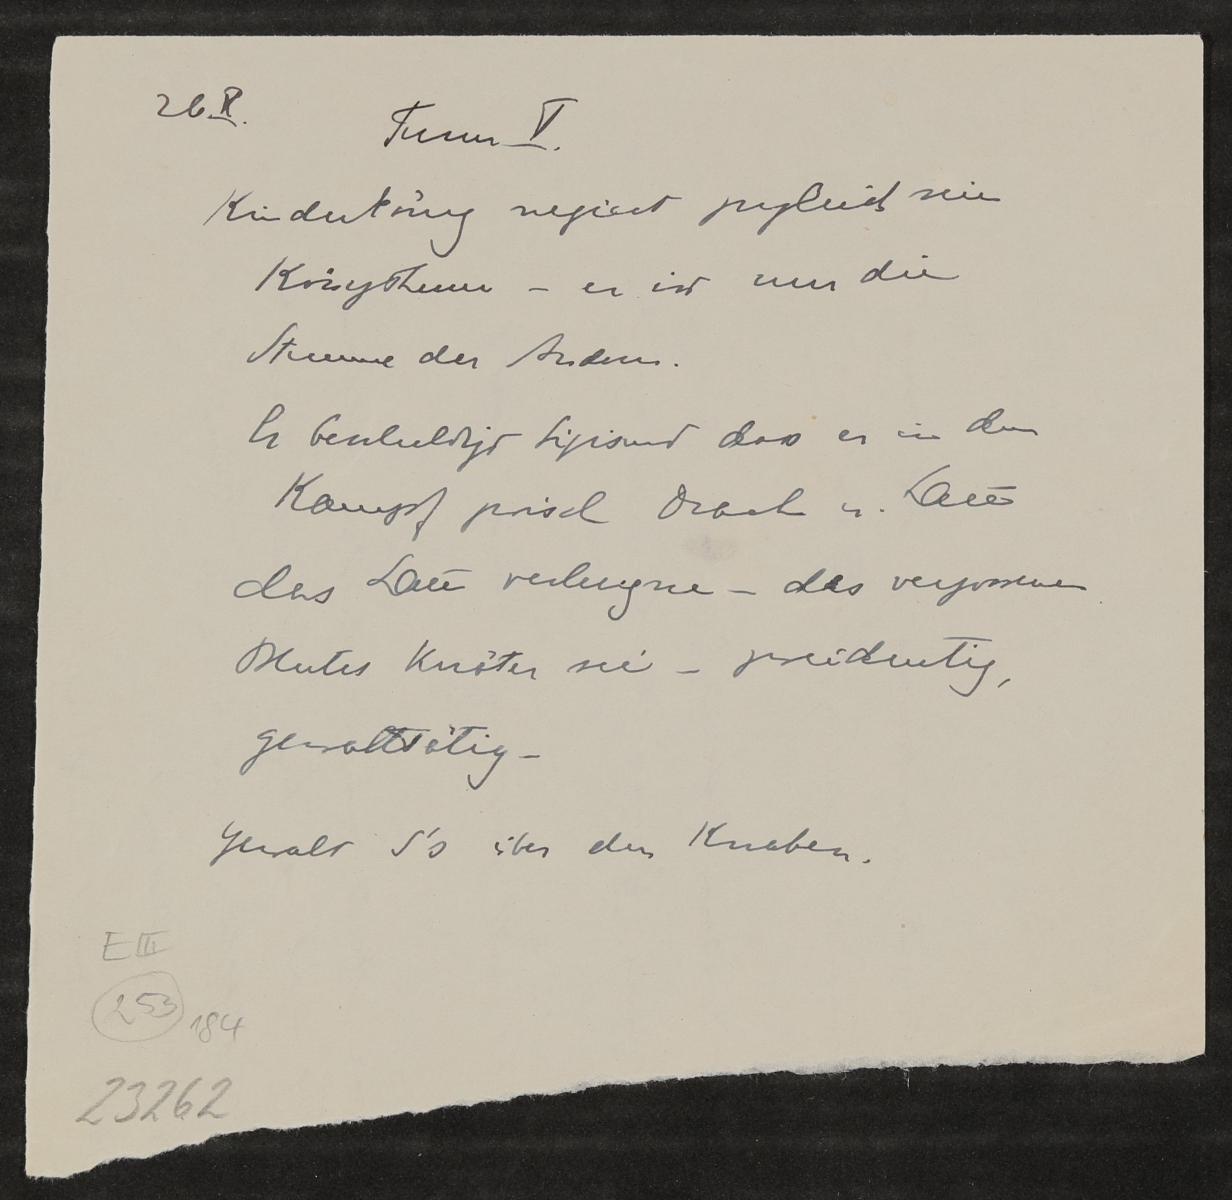 26 X.
Turm V.
Kinderkönig negiert zugleich sein
Königthum – er ist nur die
Stimme der Andern.
Er beschuldigt Sigismund dass er in dem
Kampf zwisch Drach u. Lam̄
das Lam̄ verleugne – des vergossenen
Blutes Knäter sei – zweideutig,
gewalttätig –
Gewalt S's über den Knaben.
E III
253 184
23262